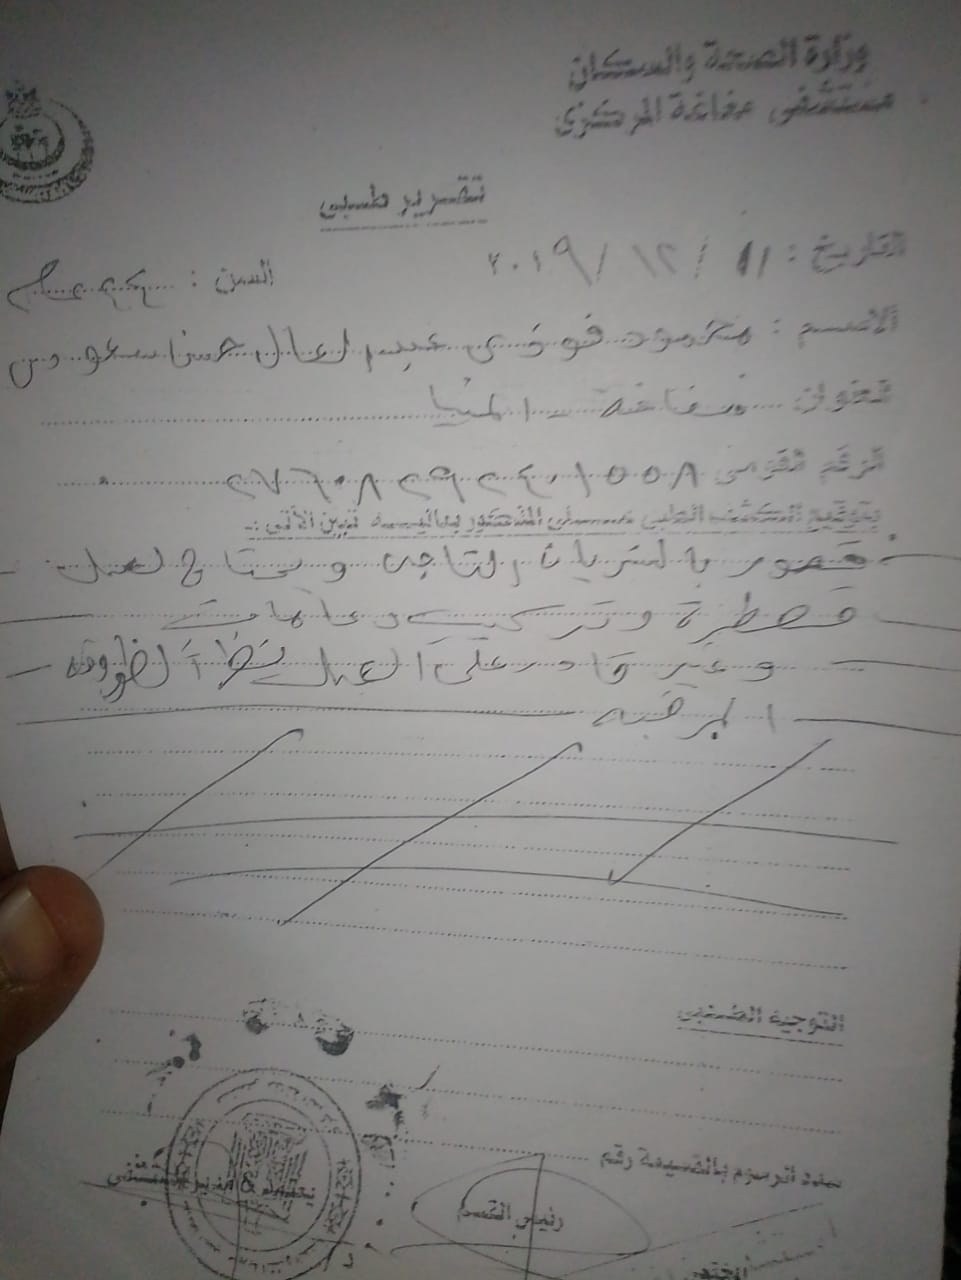 وزارة الصحة والسكان
مستشفى مغاغة المركزى
تقرير طبى
التاريخ : ١١ / ١٢ / ٢٠١٩
السن :
الاسم : محمود فوزى عبد العال حسن
العنوان مغاغة - المنيا
الرقم القومى
بتوقيع الكشف الطبى على المذكور بعاليه تبين الأتى :-
قصور بالشريان التاجى ويحتاج لعمل
قسطرة وتركيب دعامات
وغير قادر على العمل نظراً لظروفه
المرضية
التوجيه الطبى
سدد الرسوم بالقسيمة رقم
رئيس القسم